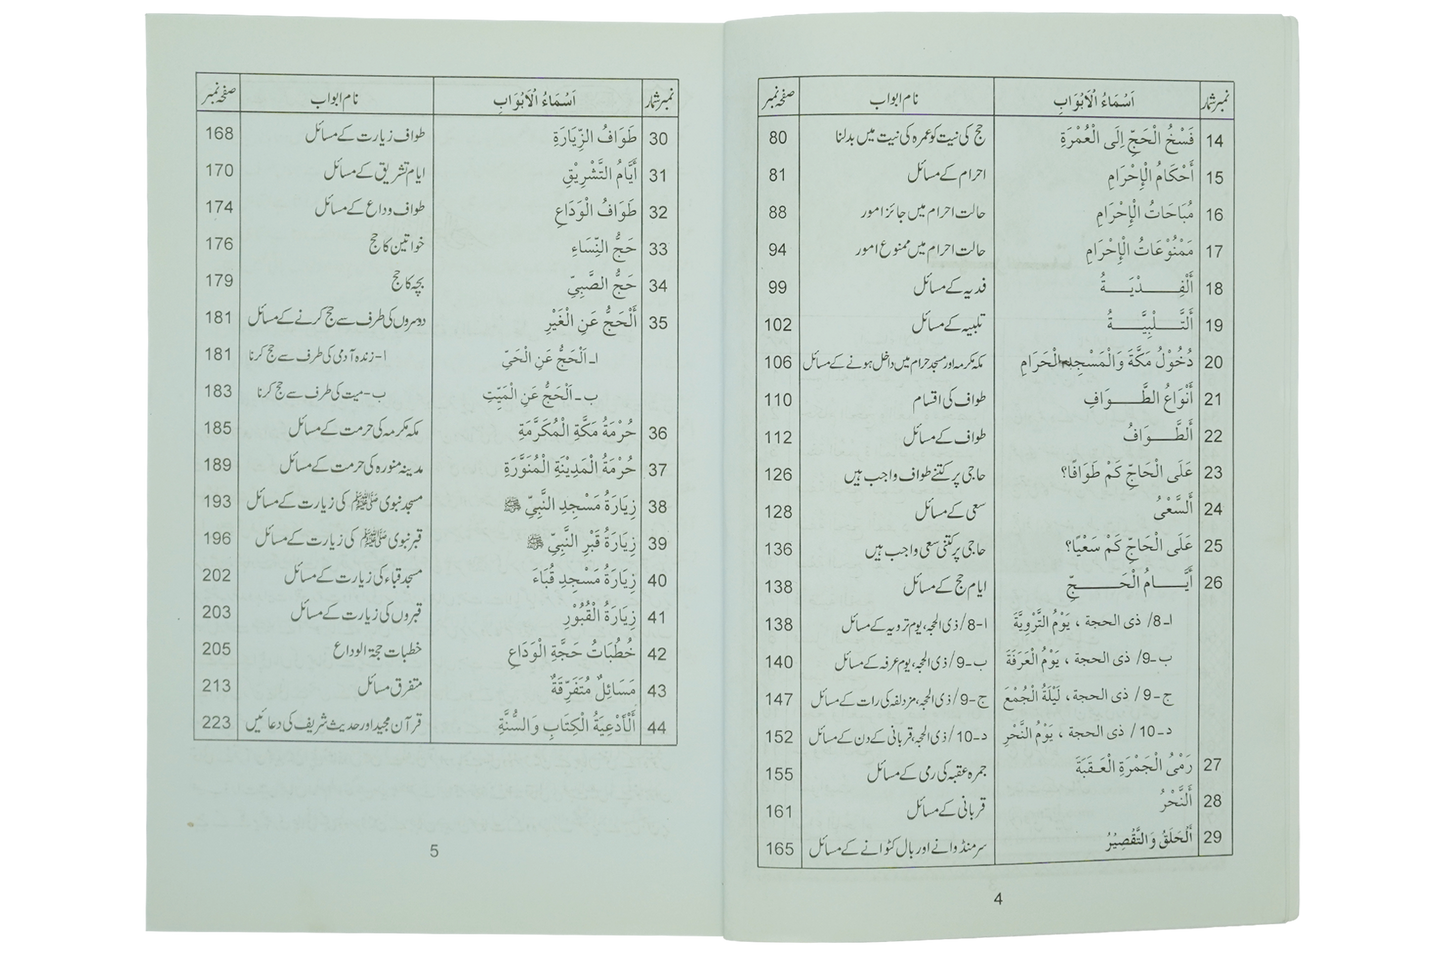 نمبر شمار اَسْمَاءُ الْاَبْوَابِ نام ابواب صفحہ نمبر
14 فَسْخُ الْحَجِّ اِلَى الْعُمْرَةِ حج کی نیت کو عمرہ کی نیت میں بدلنا 80
15 أَحْكَامُ الْإِحْرَامِ احرام کے مسائل 81
16 مُبَاحَاتُ الْإِحْرَامِ حالت احرام میں جائز امور 88
17 مَمْنُوْعَاتُ الْإِحْرَامِ حالت احرام میں ممنوع امور 94
18 أَلْفِـــدْيَـــةُ فدیہ کے مسائل 99
19 أَلتَّـــلْبِيَّـــةُ تلبیہ کے مسائل 102
20 دُخُوْلُ مَكَّةَ وَالْمَسْجِدِ الْحَرَامِ مکہ مکرمہ اور مسجد حرام میں داخل ہونے کے مسائل 106
21 أَنْوَاعُ الطَّـــوَافِ طواف کی اقسام 110
22 أَلطَّـــوَافُ طواف کے مسائل 112
23 عَلَى الْحَاجِّ كَمْ طَوَافًا؟ حاجی پر کتنے طواف واجب ہیں 126
24 أَلسَّعْىُ سعی کے مسائل 128
25 عَلَى الْحَاجِّ كَمْ سَعْيًا؟ حاجی پر کتنی سعی واجب ہیں 136
26 أَيَّـــامُ الْحَـــجِّ ایام حج کے مسائل 138
ا-8/ ذى الحجة ، يَوْمُ التَّرْوِيَّةَ ا-8/ ذی الحجہ، یوم ترویہ کے مسائل 138
ب-9/ ذى الحجة ، يَوْمُ الْعَرَفَةَ ب-9/ ذی الحجہ، یوم عرفہ کے مسائل 140
ج-9/ ذى الحجة، لَيْلَةُ الْجُمْعَ ج-9/ ذی الحجہ، مزدلفہ کی رات کے مسائل 147
د-10/ ذى الحجة ، يَوْمُ النَّحْرِ د-10/ ذی الحجہ، قربانی کے دن کے مسائل 152
27 رَمْىُ الْجَمْرَةِ الْعَـقَبَةَ جمرہ عقبہ کی رمی کے مسائل 155
28 أَلنَّحْرُ قربانی کے مسائل 161
29 أَلْحَلَقُ وَالتَّقْصِيْرُ سر منڈوانے اور بال کٹوانے کے مسائل 165
4
نمبر شمار اَسْمَاءُ الْاَبْوَابِ نام ابواب صفحہ نمبر
30 طَوَافُ الزِّيَارَةِ طواف زیارت کے مسائل 168
31 أَيَّامُ التَّشْرِيْقِ ایام تشریق کے مسائل 170
32 طَوَافُ الْوَدَاعِ طواف وداع کے مسائل 174
33 حَجُّ النِّسَاءِ خواتین کا حج 176
34 حَجُّ الصَّبِيِّ بچہ کا حج 179
35 أَلْحَجُّ عَنِ الْغَيْرِ دوسروں کی طرف سے حج کرنے کے مسائل 181
ا-اَلْحَجُّ عَنِ الْحَيِّ ا-زندہ آدمی کی طرف سے حج کرنا 181
ب-اَلْحَجُّ عَنِ الْمَيِّتِ ب-میت کی طرف سے حج کرنا 183
36 حُرْمَةُ مَكَّةِ الْمُكَرَّمَةِ مکہ مکرمہ کی حرمت کے مسائل 185
37 حُرْمَةُ الْمَدِيْنَةِ الْمُنَوَّرَةِ مدینہ منورہ کی حرمت کے مسائل 189
38 زِيَارَةُ مَسْجِدِ النَّبِيِّ ﷺ مسجد نبوی ﷺ کی زیارت کے مسائل 193
39 زِيَارَةُ قَبْرِ النَّبِيِّ ﷺ قبر نبوی ﷺ کی زیارت کے مسائل 196
40 زِيَارَةُ مَسْجِدِ قُبَاءَ مسجد قباء کی زیارت کے مسائل 202
41 زِيَارَةُ الْقُبُوْرِ قبروں کی زیارت کے مسائل 203
42 خُطْبَاتُ حَجَّةِ الْوَدَاعِ خطبات حجۃ الوداع 205
43 مَسَائِلٌ مُتَفَرِّقَةٌ متفرق مسائل 213
44 أَلْأَدْعِيَةُ الْكِتَابِ وَالسُّنَّةِ قرآن مجید اور حدیث شریف کی دعائیں 223
5